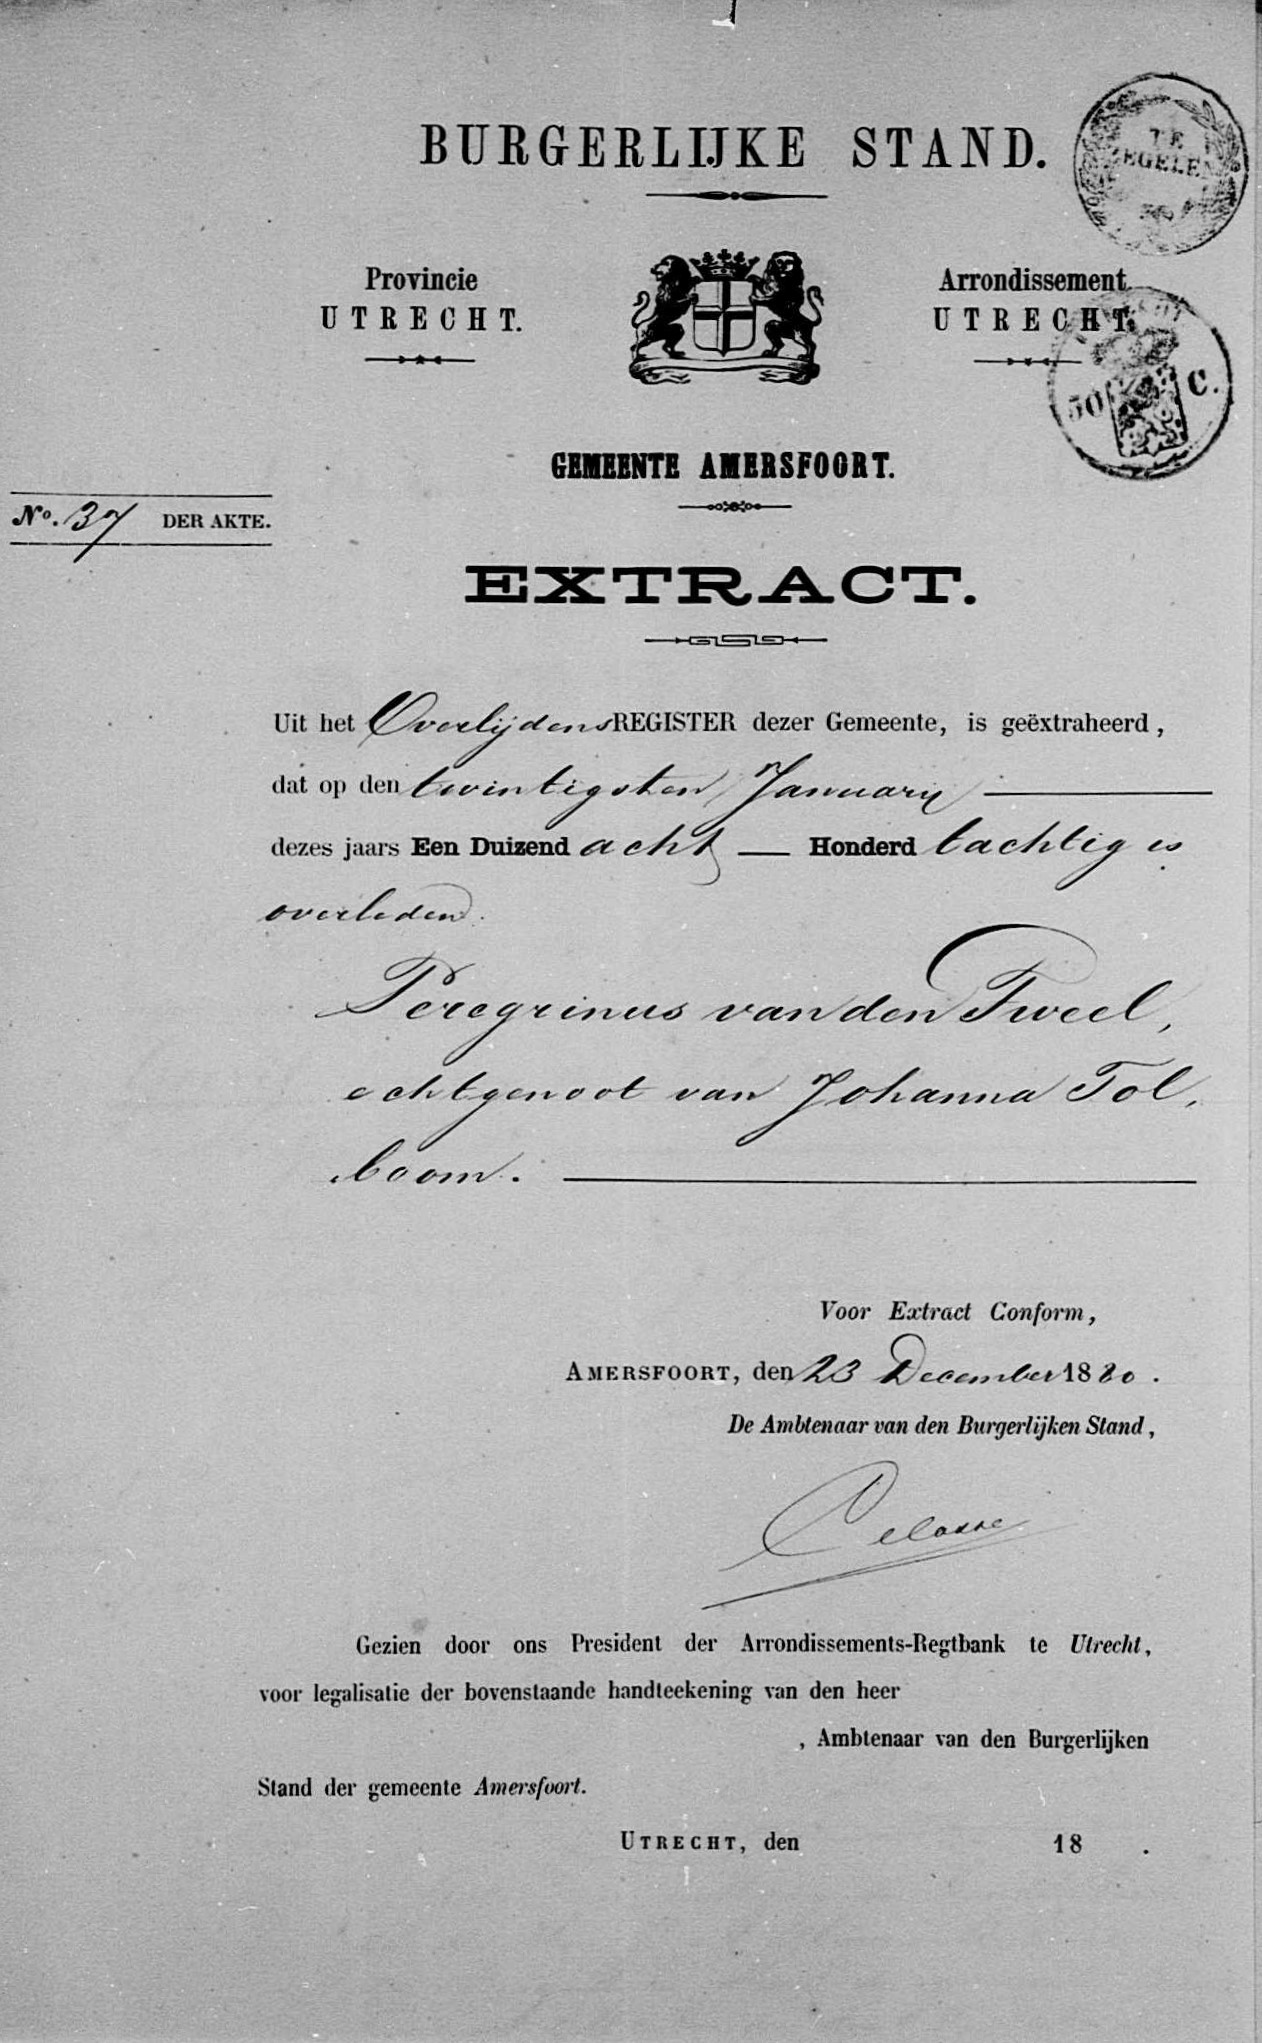 BURGERLIJKE STAND.
TE
ZEGELEN
Provincie
UTRECHT.
Arrondissement
UTRECHT.
50 C.
GEMEENTE AMERSFOORT.
No. 37 DER AKTE.
EXTRACT.
Uit het OverlijdensREGISTER dezer Gemeente, is geëxtraheerd,
dat op den twintigsten January
dezes jaars Een Duizend acht Honderd tachtig is
overleden.
Peregrinus van den Tweel,
echtgenoot van Johanna Tol,
,boom.
Voor Extract Conform,
AMERSFOORT, den 23 December 1880.
De Ambtenaar van den Burgerlijken Stand,
Gezien door ons President der Arrondissements-Regtbank te Utrecht,
voor legalisatie der bovenstaande handteekening van den heer
, Ambtenaar van den Burgerlijken
Stand der gemeente Amersfoort.
UTRECHT, den 18 .